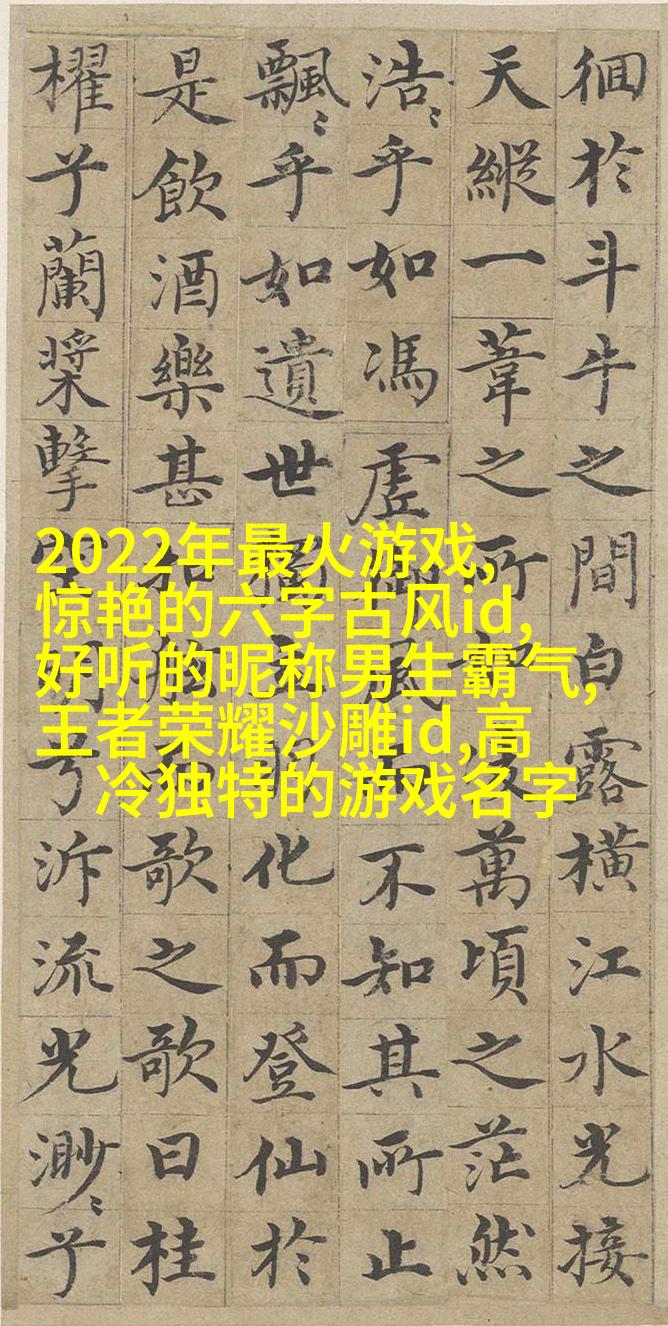 徊於斗牛之間白露橫江水光接
天縱一葦之所萬頃之茫然
浩〻乎如馮虛風不知其所止
飄〻乎如遺世化而登仙於
是飲酒樂甚歌之歌曰桂
櫂兮蘭槳擊兮泝流光渺〻兮
2022年最火游戏,
惊艳的六字古风id,
好听的昵称男生霸气,
王者荣耀沙雕id,高
冷独特的游戏名字